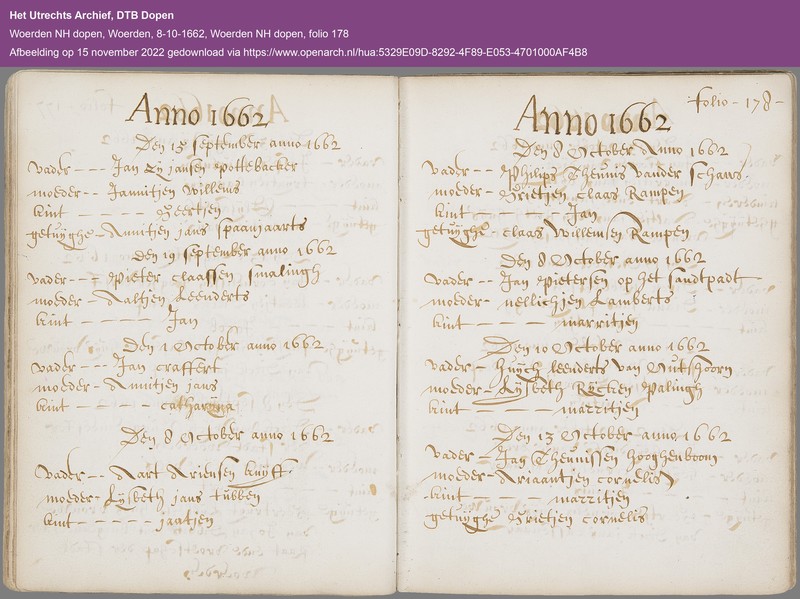 Het Utrechts Archief, DTB Dopen
Woerden NH dopen, Woerden, 8-10-1662, Woerden NH dopen, folio 178
Afbeelding op 15 november 2022 gedownload via https://www.openarch.nl/hua:5329E09D-8292-4F89-E053-4701000AF4B8
Anno 1662
Den 15 September anno 1662
vader - - - Jan jansen pottebacker
moeder - - Jannitjen Willems
kint - - - - - Geertjen
getuijghe - Annitjen jans spaanjaarts
Den 19 September anno 1662
vader - - - Pieter claassen smalingh
moeder - Aaltjen Leenderts
kint - - - - - Jan
Den 1 October anno 1662
vader - - - Jan craffert
moeder - Annitjen jans
kint - - - - - catharijna
Den 8 October anno 1662
vader - - Aart Ariensen kuijff
moeder - Lijsbeth jans tubben
kint - - - - - jaatjen
folio - 178 -
Anno 1662
Den 8 October Anno 1662
vader - - Philips Theunis vander Schans
moeder - Grietjen claas Rampen
kint - - - - - Jan
getuijghe - claas Willemsen Rampen
Den 8 October anno 1662
vader - - Jan Pietersen op het sandtpadt
moeder - nellichjen Lamberts
kint - - - - - marritjen
Den 10 October anno 1662
vader - Huijch leenderts van Outshoorn
moeder - Lijsbeth Rijcken Palingh
kint - - - - - marritjen
Den 13 October anno 1662
vader - - Jan Theunissen hooghenboom
moeder - Ariaantjen cornelis
kint - - - - - marritjen
getuijghe Grietjen cornelis